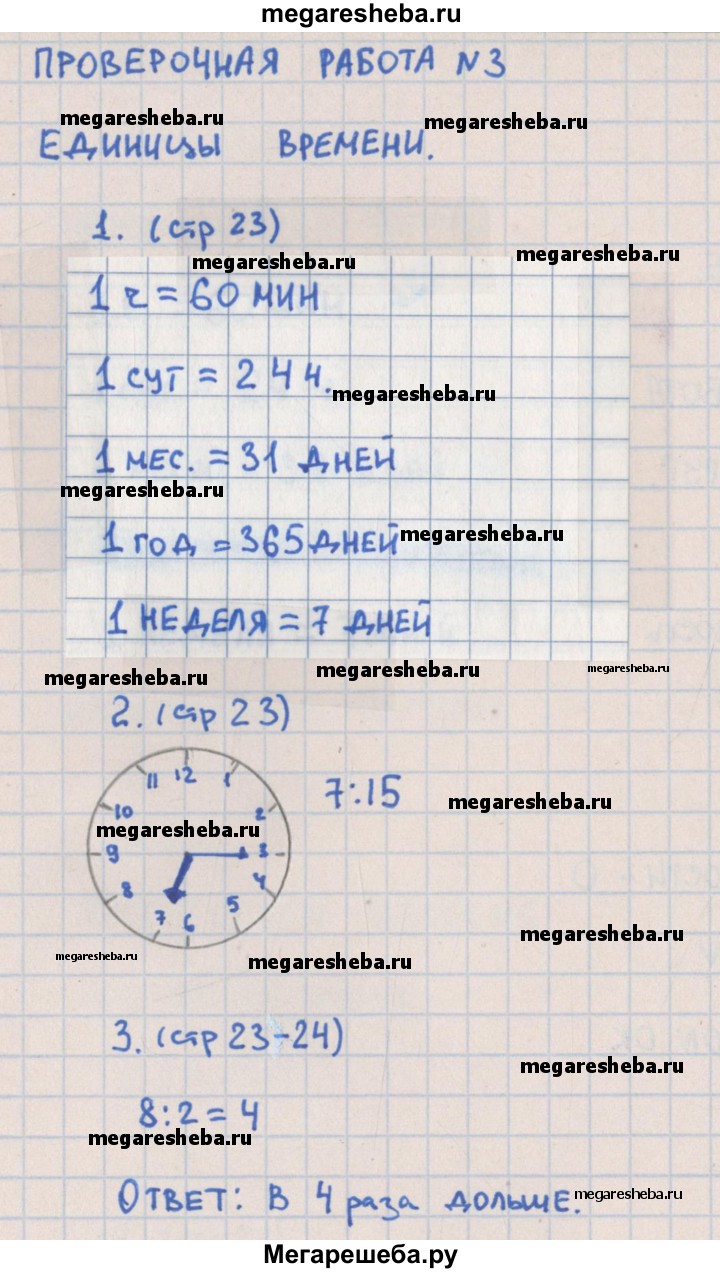 megaresheba.ru
ПРОВЕРОЧНАЯ РАБОТА N3
megaresheba.ru
megaresheba.ru
ЕДИНИЦЫ ВРЕМЕНИ.
1. (стр 23)
megaresheba.ru
megaresheba.ru
1 ч = 60 МИН
1 СУТ = 24 ч.
megaresheba.ru
1 МЕС. = 31 ДНЕЙ
megaresheba.ru
1 ГОД = 365 ДНЕЙ
megaresheba.ru
1 НЕДЕЛЯ = 7 ДНЕЙ
megaresheba.ru
megaresheba.ru
megaresheba.ru
2. (стр 23)
11 12 1
7:15
10 2
megaresheba.ru
megaresheba.ru
9 3
8 4
7 6 5
megaresheba.ru
megaresheba.ru
megaresheba.ru
3. (стр 23-24)
megaresheba.ru
8:2=4
megaresheba.ru
ОТВЕТ: В 4 раза ДОЛЬШЕ.
megaresheba.ru
Мегарешеба.ру